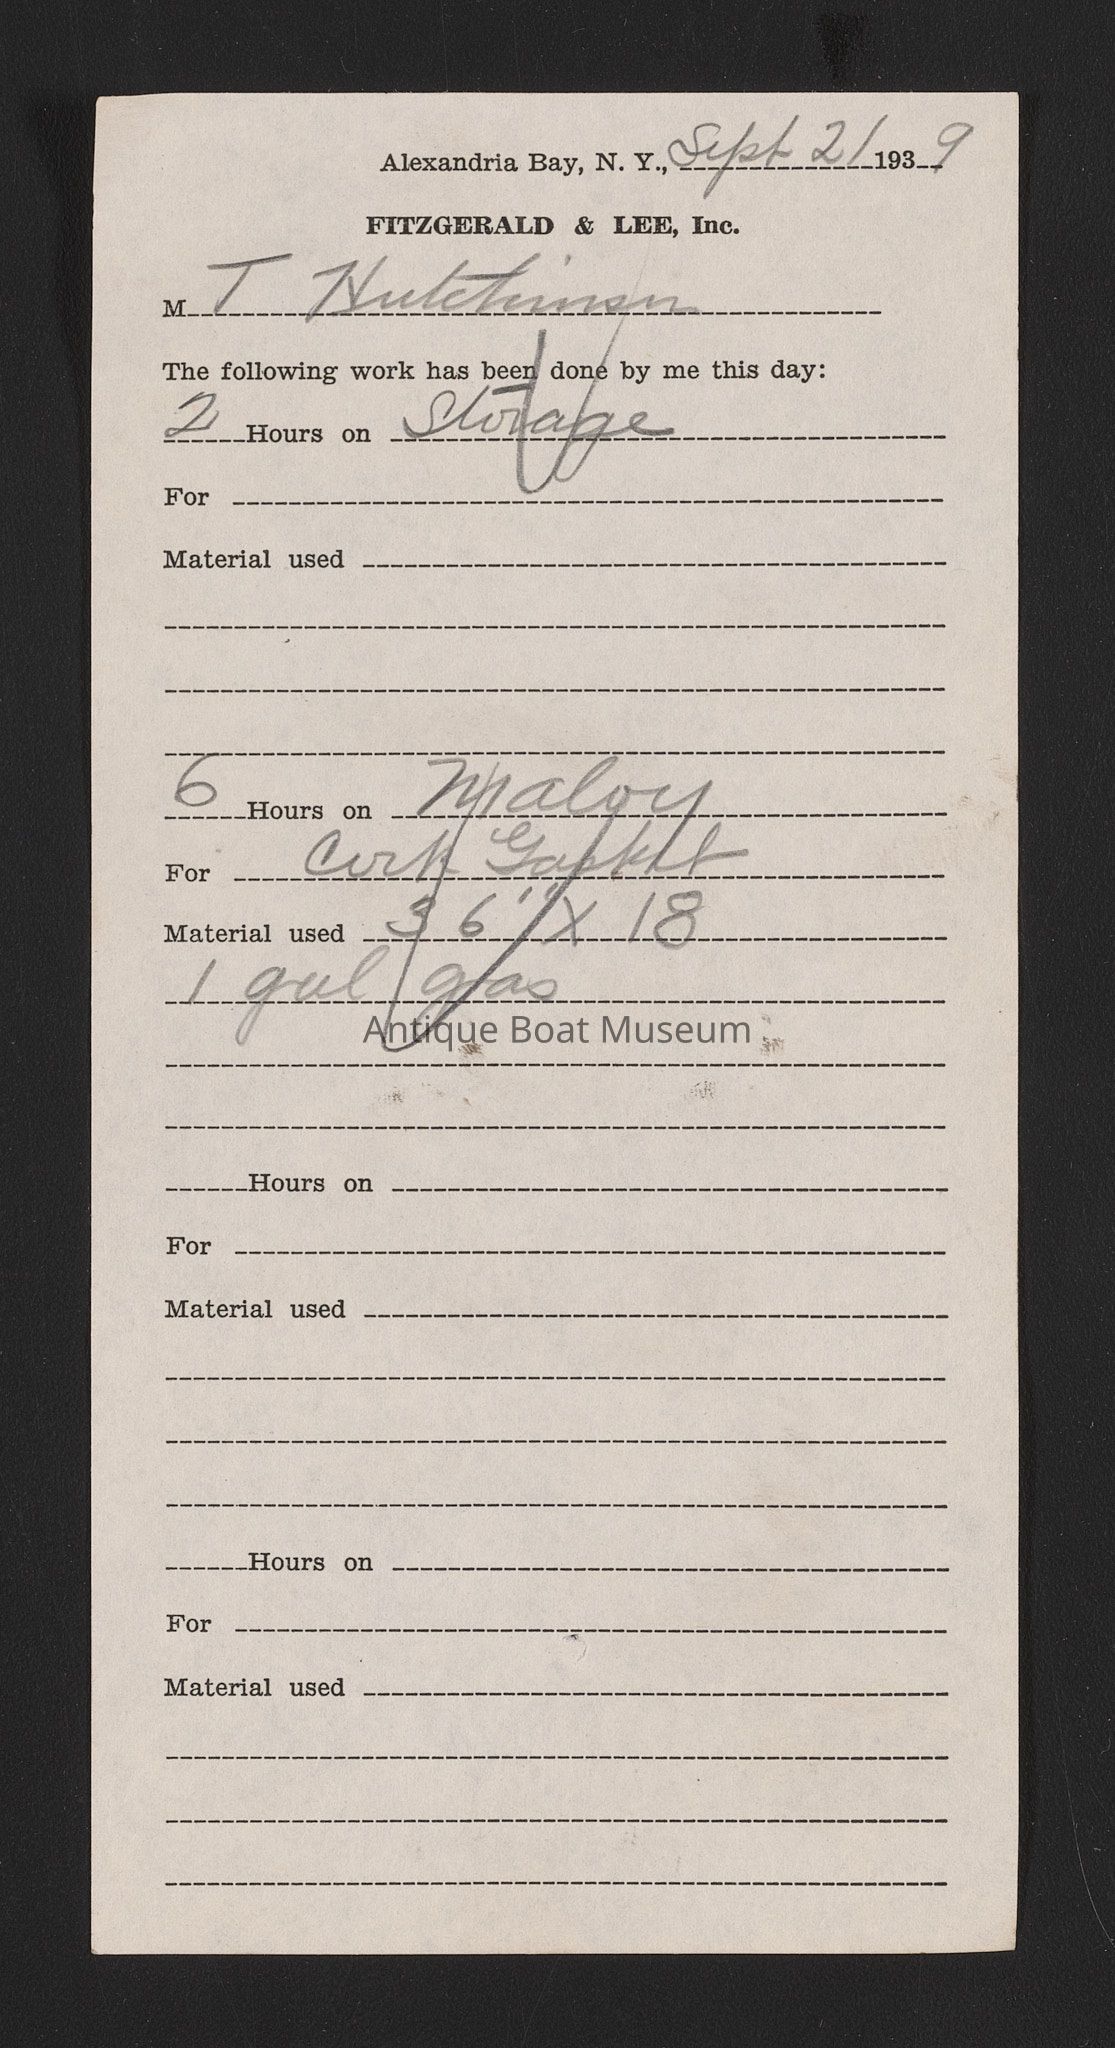 Alexandria Bay, N. Y., Sept 21 1939
FITZGERALD & LEE, Inc.
M T Hutchinson
The following work has been done by me this day:
2 Hours on Storage
For
Material used
6 Hours on Maloy
For Cork Gasket
Material used 36" X 18
1 gal gas
Antique Boat Museum
Hours on
For
Material used
Hours on
For
Material used